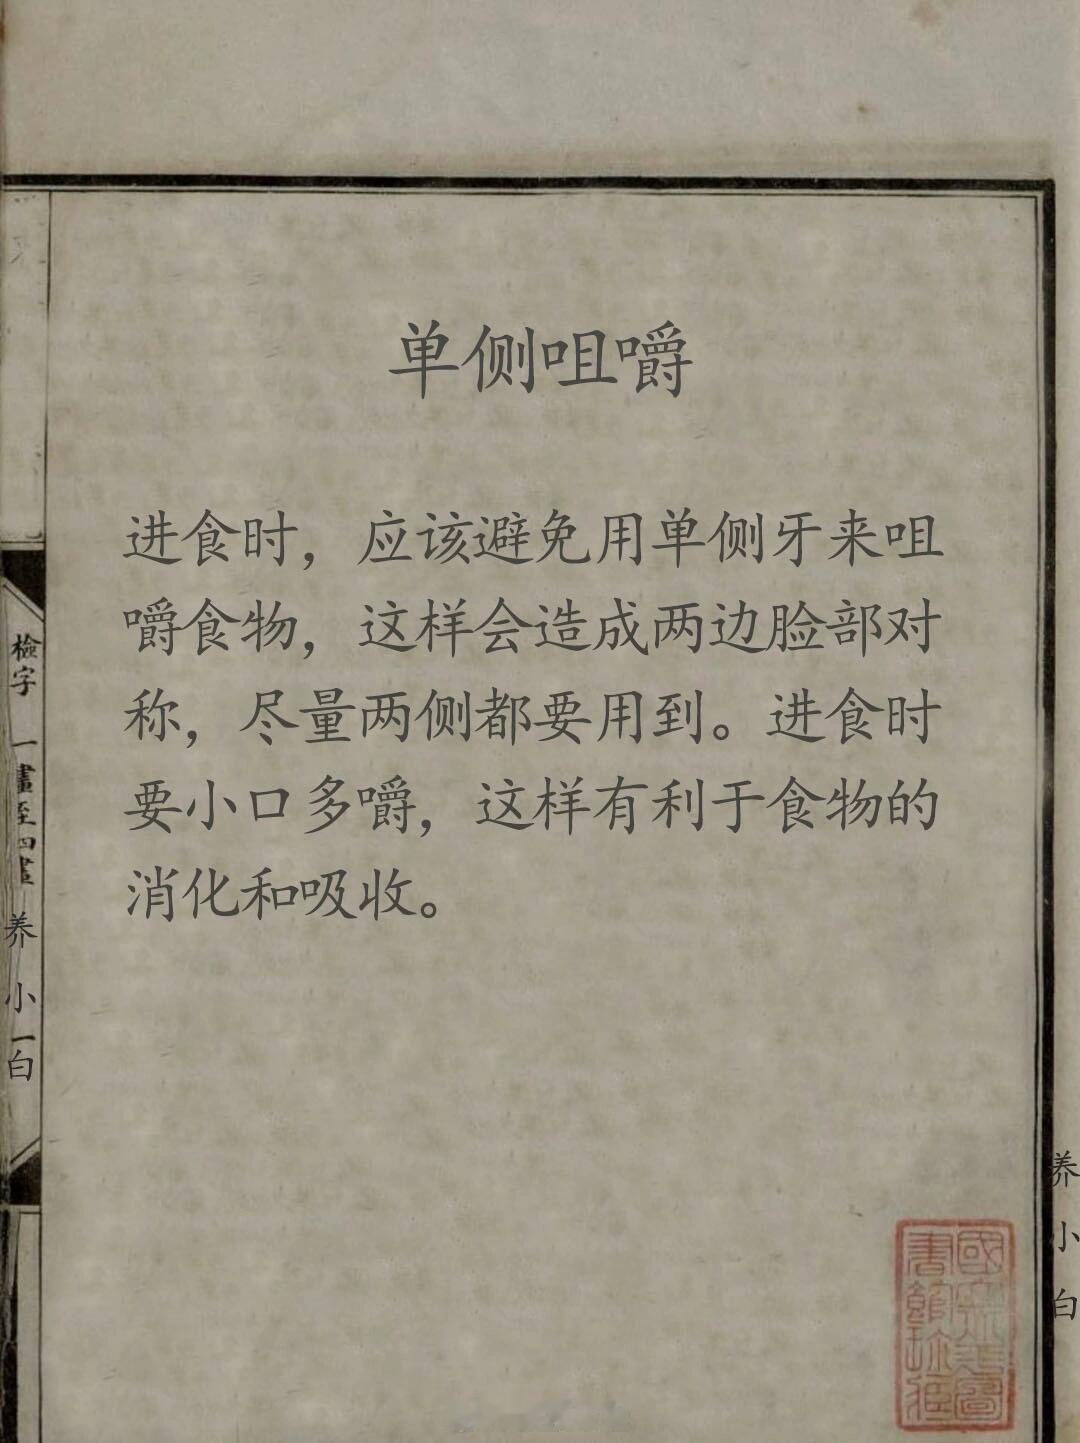 单侧咀嚼
进食时，应该避免用单侧牙来咀
嚼食物，这样会造成两边脸部对
称，尽量两侧都要用到。进食时
要小口多嚼，这样有利于食物的
消化和吸收。
檢字
一畫至四畫
养小一白
养小白
國家圖
書館珍藏